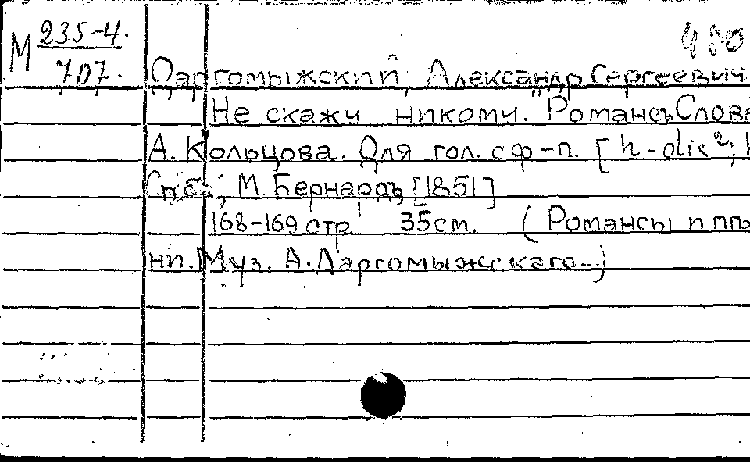 М 235-4.
707.
480
Даргомыжский, Александр Сергеевич
Не скажу никому. Романсъ. Слова
А. Кольцова. Для гол. с ф-п. [h-dis²;
Спб., М. Бернардъ, [1851]
168-169 стр. 35 см. (Романсы и пѣ
ни. Муз. А. Даргомыжскаго...)